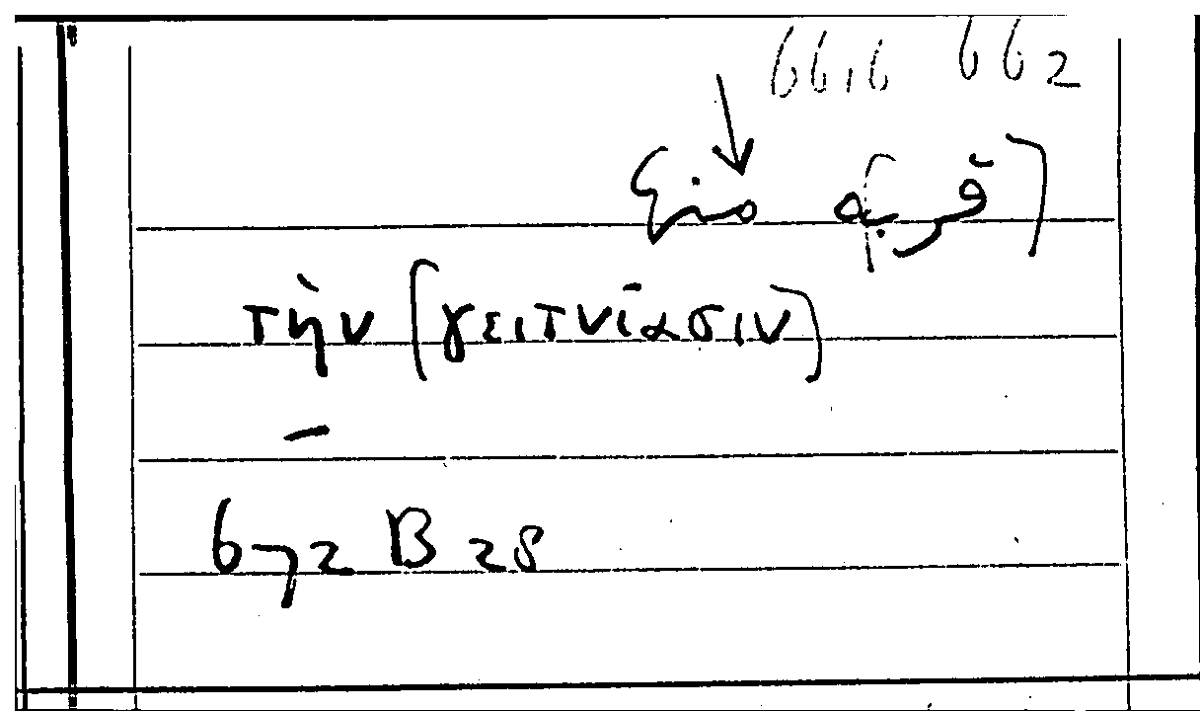 6616 662
(قرب)ه منها
τὴν (γειτνίασιν)
–
672 B 28